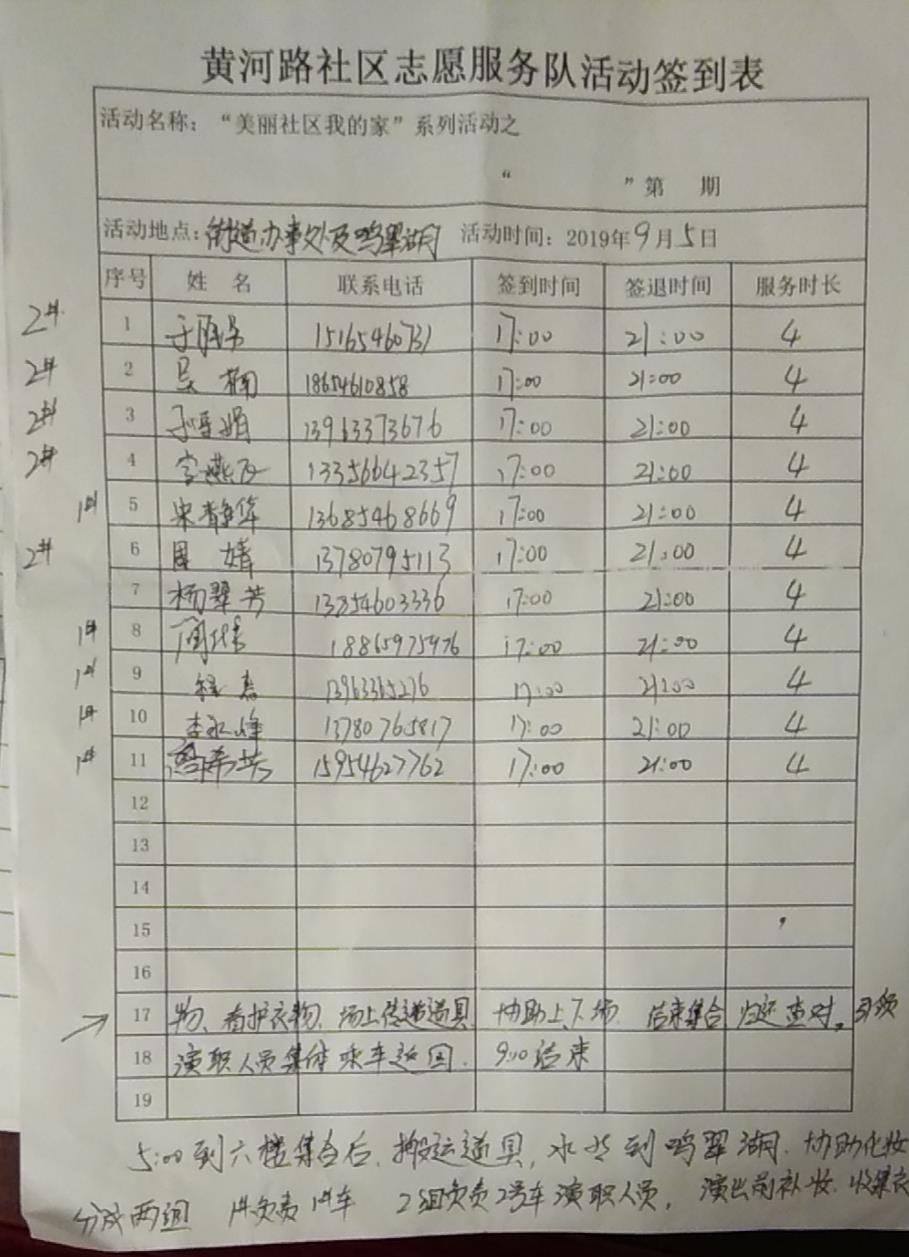 黄河路社区志愿服务队活动签到表
活动名称：“美丽社区我的家”系列活动之
“ ”第 期
活动地点：街道办事处及鸣翠湖 活动时间：2019年9月5日
序号 姓名 联系电话 签到时间 签退时间 服务时长
2# 1 15165460731 17:00 21:00 4
2# 2 吴楠 18654610858 17:00 21:00 4
2# 3 13963373676 17:00 21:00 4
2# 4 李燕 13356642357 17:00 21:00 4
1# 5 宋静华 13685468669 17:00 21:00 4
2# 6 周婧 13780795113 17:00 21:00 4
7 杨翠芳 13854603336 17:00 21:00 4
1# 8 18865975976 17:00 21:00 4
1# 9 13963365276 17:00 21:00 4
1# 10 李永峰 13780765817 17:00 21:00 4
1# 11 15954627762 17:00 21:00 4
12
13
14
15
16
17 物、看护衣物、场上传递道具 协助上下场 结束集合 归还查对，
18 演职人员集体乘车返回. 9:00结束
19
5:00到六楼集合后、搬运道具，水 到鸣翠湖. 协助化妆
分成两组 1#负责1#车 2组负责2号车演职人员， 演出前补妆、收集衣